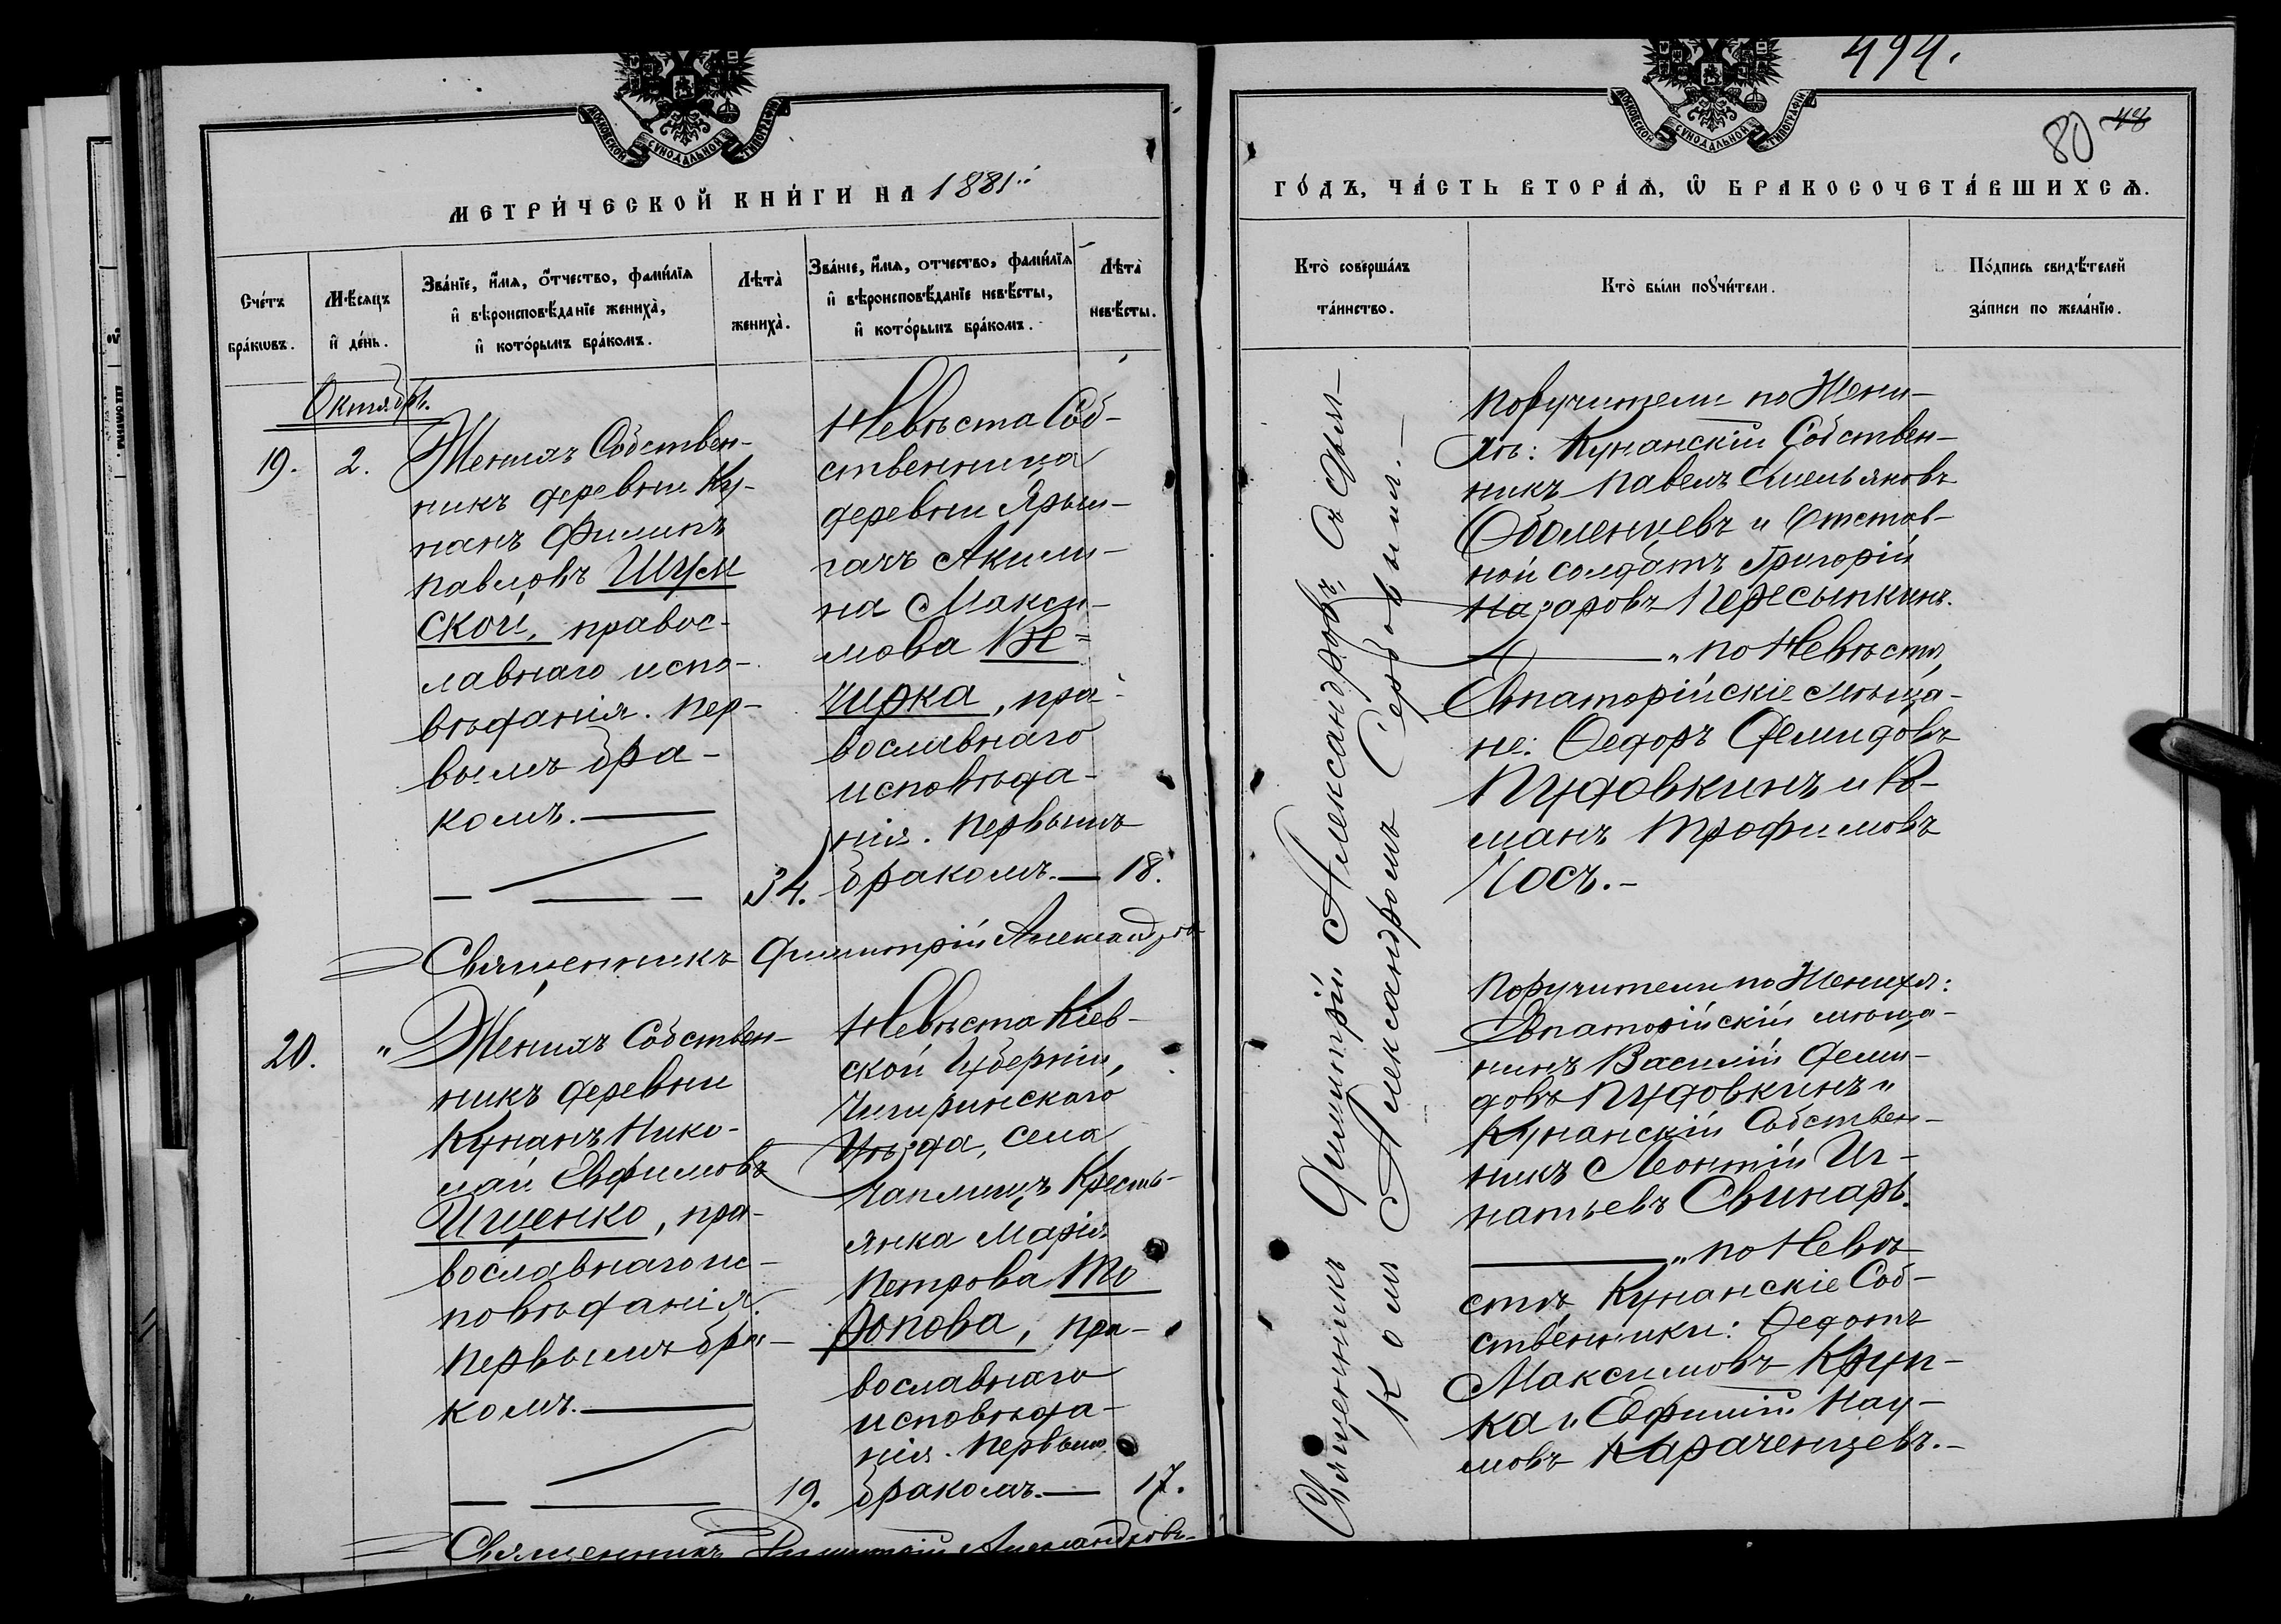 МОСКОВСКОЙ СѴНОДАЛЬНОЙ ТИПОГРАФІИ
МЕТРИ́ЧЕСКОЙ КНИ́ГИ НА 1881й
Сче́тъ бра́кѡвъ.
Мѣ́сяцъ и҆ де́нь.
Зва́нїе, и҆́мѧ, о҆́тчество, фами́лїѧ
и҆ вѣроисповѣ́данїе жениха̀,
и҆ кото́рымъ бра́комъ.
Лѣта̀ жениха̀.
Зва́нїе, и҆́мѧ, отчество, фами́лїѧ
и҆ вѣроисповѣ́данїе невѣ́сты,
и҆ кото́рымъ бра́комъ.
Лѣта̀ невѣ́сты.
Октябрь.
19.
2.
Женихъ Собствен-
никъ деревни Ку-
нанъ Филипъ
Павловъ Шум
ской, правос-
лавнаго испо-
вѣданія. Пер-
вымъ бра-
комъ.
34.
Невѣста Соб-
ственница
деревни Ярыл-
гачъ Акили-
на Макси-
мова Ке=
чирка, пра-
вославнаго
исповѣда-
нія. Первымъ
бракомъ. 18.
Священникъ Димитрій Александровъ
20.
"
Женихъ Собствен-
никъ деревни
Кунанъ Нико-
лай Евфимовъ
Ищенко, пра-
вославнаго ис-
повѣданія.
Первымъ бра-
комъ.
19.
Невѣста Кіев-
ской Губерніи,
Чигиринскаго
Уѣзда, села
Чаплищъ Кресть-
янка Марія
Петрова То
ропова, пра-
вославнаго
исповѣда-
нія. Первымъ
бракомъ. 17.
Священникъ Димитрій Александровъ
494.
80
48
МОСКОВСКОЙ СѴНОДАЛЬНОЙ ТИПОГРАФІИ
ГО́ДЪ, ЧА́СТЬ ВТОРА́Ѧ, Ѡ҆ БРАКОСОЧЕТА́ВШИХСѦ.
Кто̀ соверша́лъ
та́инство.
Кто̀ бы́ли поꙋчи́тели.
По́дпись свидѣ́телей
за́писи по жела́нїю.
Священникъ Димитрій Александровъ, съ Дьяч-
комъ Александромъ Сербовымъ.
Поручители по Жени-
хѣ: Кунанскій Собствен-
никъ Павелъ Емельяновъ
Оболенцевъ и Отстав-
ной солдатъ Григорій
Назаровъ Пересыпкинъ.
" по Невѣстѣ,
Евпаторійскіе мѣща-
не: Ѳедоръ Демидовъ
Пудовкинъ и Ро-
манъ Трофимовъ
Носъ.
Поручители по Женихѣ:
Евпаторійскій мѣща-
нинъ Василій Деми-
довъ Пудовкинъ и
Кунанскій Собствен-
никъ Леонтій Иг-
натьевъ Свинарь.
" по Невѣ-
стѣ, Кунанскіе Соб-
ственники: Ѳедотъ
Максимовъ Круп-
ка и Евфимій Нау-
мовъ Караченцевъ.